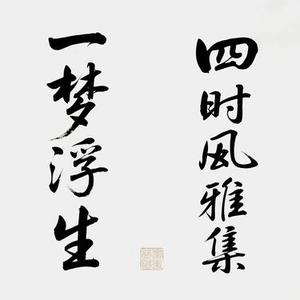 四时风雅集
一梦浮生